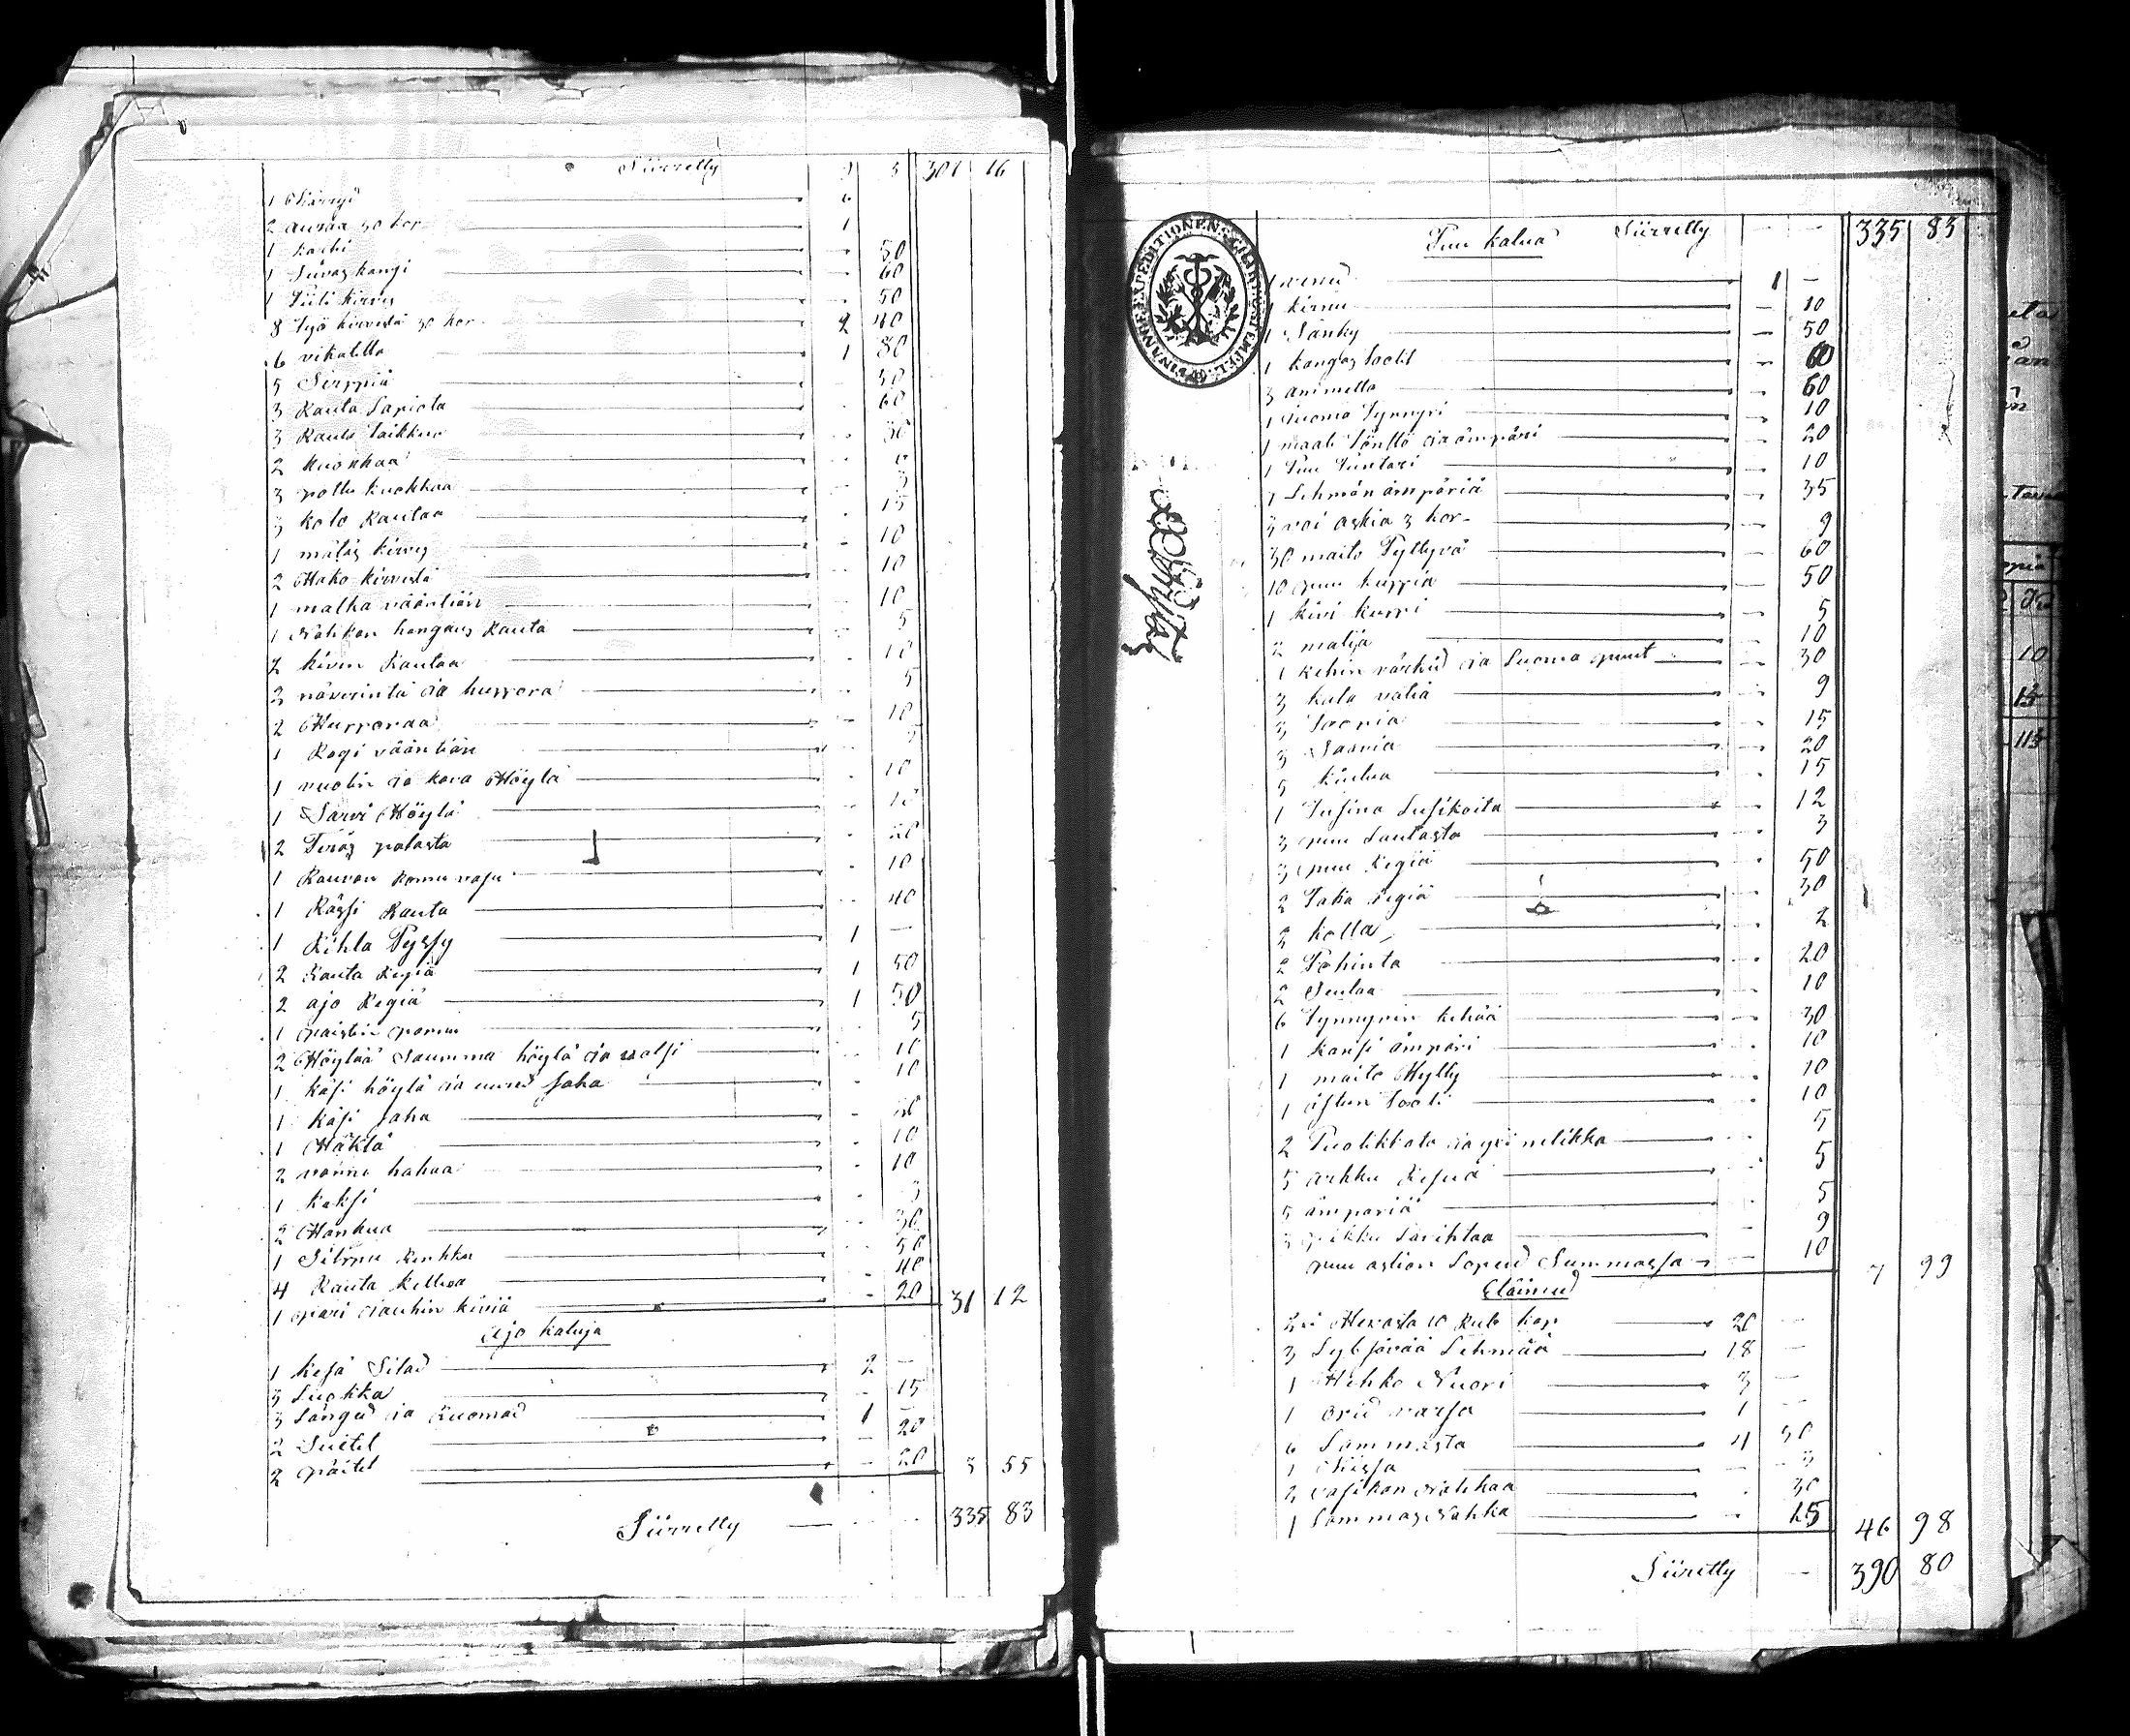 Siirretty 9 5 301 16
1 6
2 auraa 50 kop 1
1 50
1 Siivas kangi 60
1 Piili kirves 50
8 Työ kirvestä 30 kop 2 40
6 vikatetta 1 80
5 Sirppiä 50
3 Rauta Lapiota 60
3 Rauta Taikkua 30
2 kuokkaa
3 pottu kuokkaa 5
3 kolo Rautaa 15
1 mätäs kirves 10
2 Hako kirvestä 10
1 matka vääntiän 10
1 Nahkan hangaus Rauta 5
2 kivin Rautaa 10
2 näverintä ja hurrora 5
2 Hurroraa 10
1 Rogi vääntiän 5
1 vuolin ja kova Höylä 10
1 Sarvi Höylä 10
2 Teräs palasta 20
1 Rauvan Romu vasu 10
1 Rässi Rauta 40
1 Rihla Pyssy 1 —
2 Rauta Regiä 1 50
2 ajo Regiä 1 50
1 paistin pannu 5
2 Höylää Saumma höylä ja valsi 10
1 käsi höylä ja uurid saha 10
1 käsi saha
1 Häklä 10
2 vanno hakaa 10
1 keksi 5
2 Hankua 30
1 Silmu Rinkka 50
4 Rauta kelloa 40
1 pari jauhin kiviä 20 31 12
ajo kaluja
1 kesä Silad 2 —
3 Luokka 15
3 Länged ja Ruomad 1 —
2 Suitet 20
2 päitet 20 3 55
Siirretty 335 83
FINANCE EXPEDITIONENS CHARTÆ STEMPEL
Puu kalua Siirretty — — 335 83
1 venid 1 —
1 kirnu — 10
1 Sänky — 50
1 kangas toolit 60
3 ammetta 60
1 juoma Tynnyri 10
1 maali Pönttö ja ämpäri 20
1 Puu Puntari 10
7 Lehmän ämpäriä 35
3 voi askia 3 kop 9
30 maito Pyttyvä 60
10 puu kuppia 50
1 kivi kuppi 5
2 malja 10
1 kehin värkid ja Luoma puut 30
3 kala vatia 9
3 Soopia 15
3 Saavia 20
5 kiulua 15
1 Tusina Lusikoita 12
3 puu Lautasta 3
3 puu Regiä 50
2 Taka Regiä 30
2 kolla 2
2 Pohinta 20
2 Seulaa 10
6 Tynnyrin kehää 30
1 kansi ämpäri 10
1 maito Hylly 10
1 istun tooli 10
2 Puolikkota ja yxi nelikko 5
5 arkku 5
5 ämpäriä 5
3 pikku Sarihtaa 9
puu astion Lopud Summassa 10 7 99
Eläimed
2 Hevosta 10 Rub kap 20 —
3 Lybsävää Lehmää 18 —
1 Hihko Nuori 3 —
1 orid varsa 1 —
6 Lammasta 4 50
1 Kissa 3
2 vasikan Nahkaa 30
1 Lammas Nahka 15 46 98
Siiretty 390 80